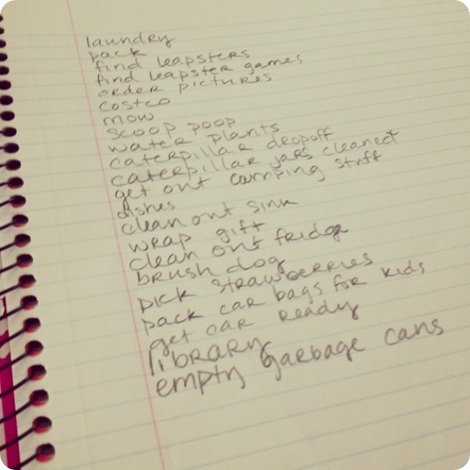 laundry
pack
find leapsters
find leapster games
order pictures
costco
mow
scoop poop
water plants
caterpillar dropoff
caterpillar jars cleaned
get out camping stuff
dishes
clean out sink
wrap gift
clean out fridge
brush dog
pick strawberries
pack car bags for kids
get car ready
library
empty garbage cans